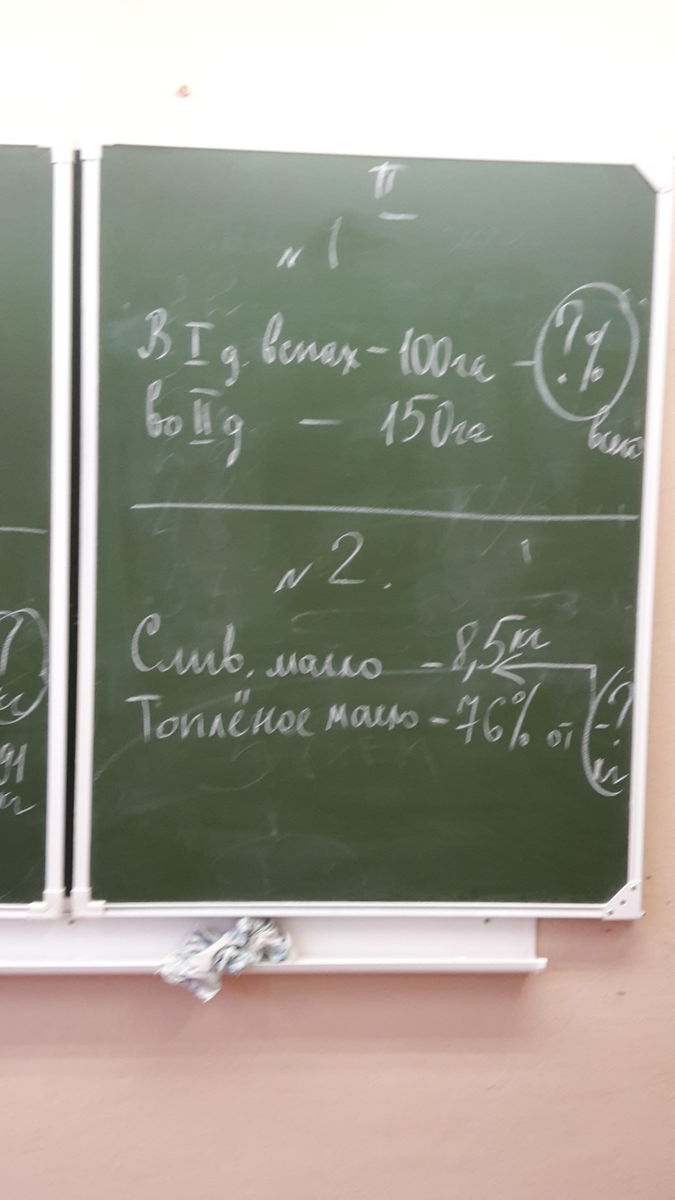 II
№ 1
В I д. вспах - 100 га - ?%
во II д - 150 га
всей
№ 2.
Слив. масло - 8,5 кг
Топлёное масло - 76% от
?
кг
?
кг
91
кг